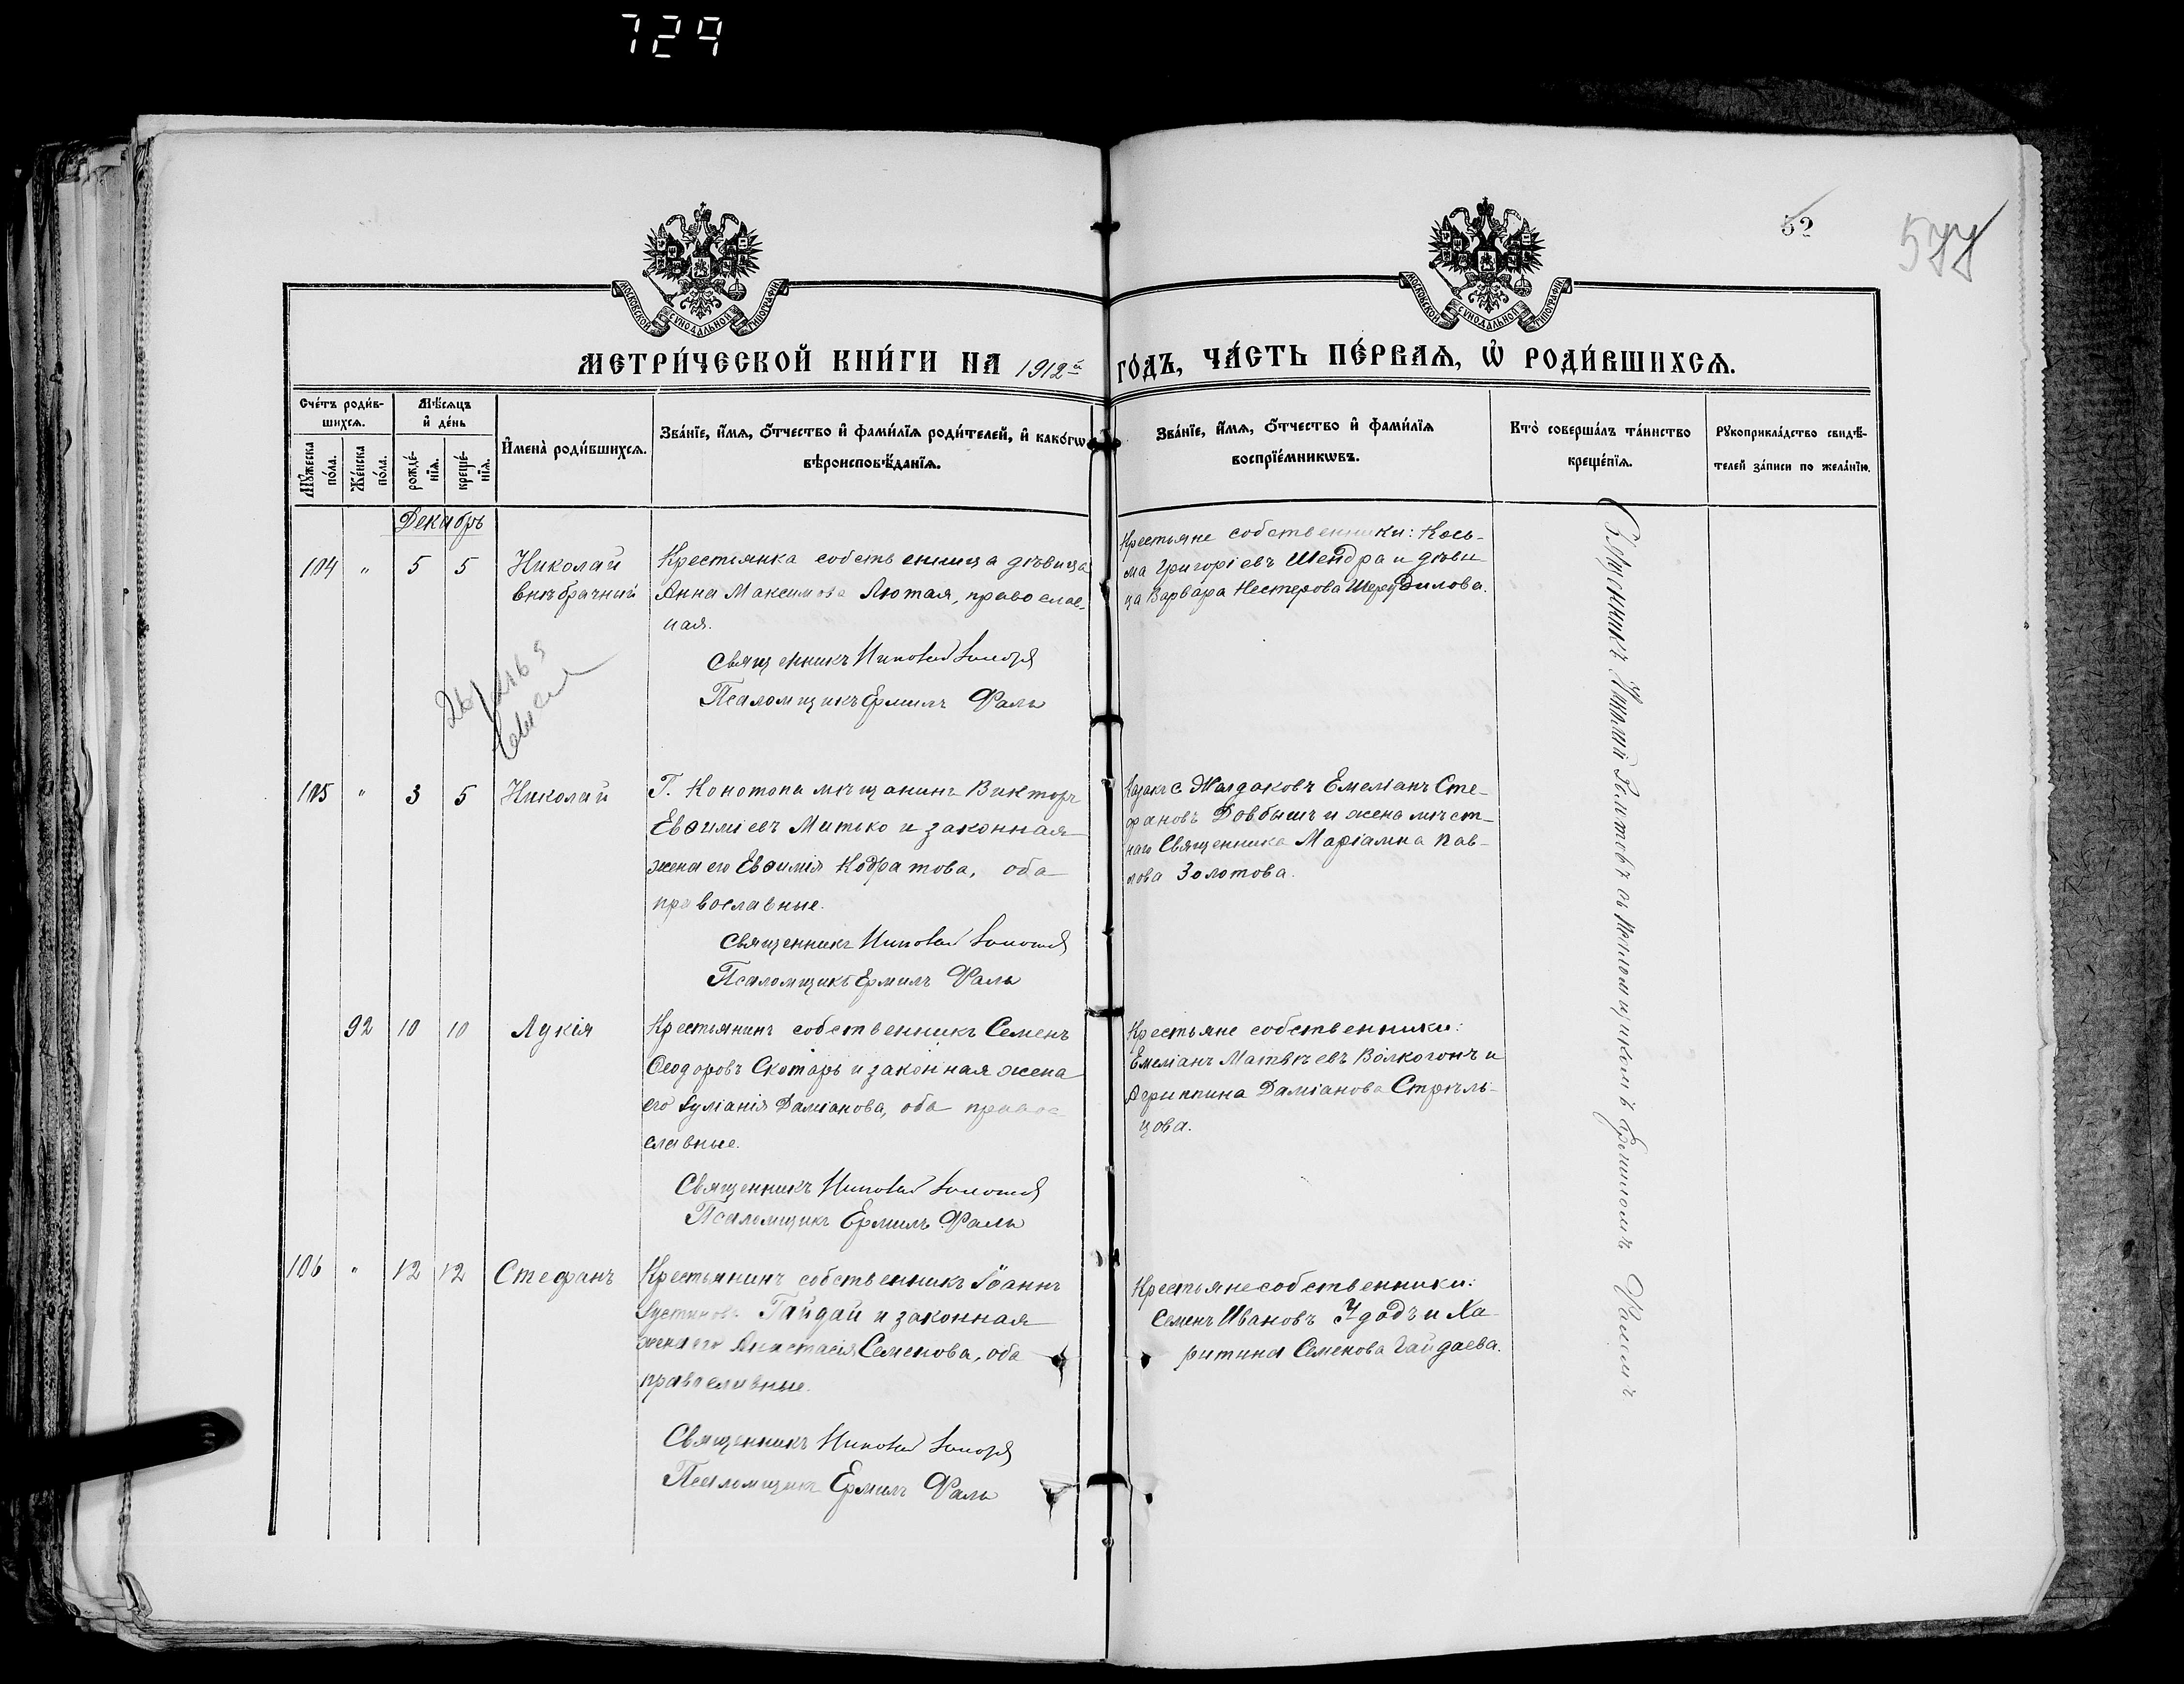 729
52
577
МОСКОВСКОЙ СѴНОДАЛЬНОЙ ТИПОГРАФІИ
МОСКОВСКОЙ СѴНОДАЛЬНОЙ ТИПОГРАФІИ
МЕТРИ́ЧЕСКОЙ КНИ́ГИ НА 1912й ГО́ДЪ, ЧА́СТЬ ПЕ́РВАѦ, Ѡ҆ РОДИ́ВШИХСѦ.
Сче́тъ роди́в-
шихсѧ.
Мꙋ́жеска по́ла.
Же́нска по́ла.
Мѣ́сѧцъ
и҆ де́нь
рожде́-
нїѧ.
креще́-
нїѧ.
И҆мена̀ роди́вшихсѧ.
Зва́нїе, и҆́мѧ, ѻ҆́тчество и҆ фами́лїѧ роди́телей, и҆ како́гѡ
вѣроисповѣ́данїѧ.
Зва́нїе, и҆́мѧ, ѻ҆́тчество и҆ фами́лїѧ
воспрїе́мникѡвъ.
Кто̀ соверша́лъ та́инство
креще́нїѧ.
Рꙋкоприкла́дство свидѣ́-
телей за́писи по жела́нїю.
Декабрь
104 " 5 5 Николай
внѣбрачный
Крестьянка собственница дѣвица
Анна Максимова Лютая, православ-
ная.
Священникъ Николай
Псаломщикъ Ермилъ Фаль
Крестьяне собственники: Кось-
ма Григоріевъ Шендра и дѣви-
ца Варвара Нестерова
105 " 3 5 Николай
Г. Конотопа мѣщанинъ Викторъ
Евѳиміевъ Митько и законная
жена его Евѳимія Кодратова, оба
православные.
Священникъ Николай
Псаломщикъ Ермилъ Фаль
Казакъ с. Жолдаковъ Емеліанъ Сте-
фановъ Довбышъ и жена мѣст-
наго Священника Маріамна Пав-
лова Золотова.
92 10 10 Лукія
Крестьянинъ собственникъ Семенъ
Ѳеодоровъ Скотарь и законная жена
его Іуліанія Даміанова, оба правос
славные.
Священникъ Николай
Псаломщикъ Ермилъ Фаль
Крестьяне собственники:
Емеліанъ Матвѣевъ Волкогонъ и
Агриппина Даміанова Стрѣль-
цова.
106 " 12 12 Стефанъ
Крестьянинъ собственникъ Іоаннъ
Іустиновъ Гайдай и законная
жена его Анастасія Семенова, оба
православные.
Священникъ Николай
Псаломщикъ Ермилъ Фаль
Крестьяне собственники:
Семенъ Ивановъ Удодъ и Ха-
ритина Семенова Гайдаева.
Священникъ Николай Золотовъ съ псаломщикомъ Ермиломъ Фалемъ